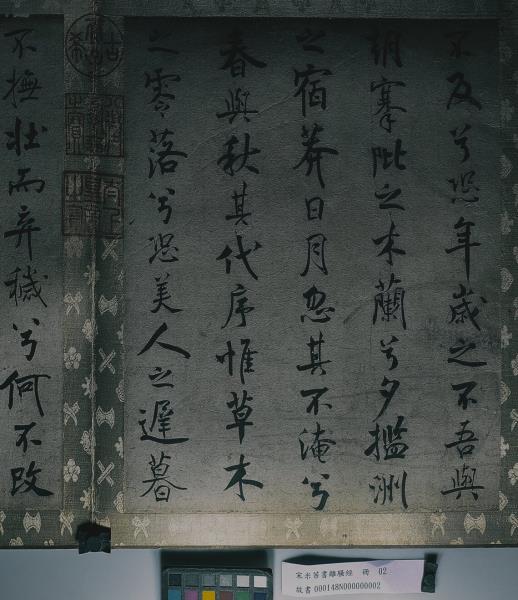 不及兮恐年歲之不吾與
朝搴阰之木蘭兮夕擥洲
之宿莽日月忽其不淹兮
春與秋其代序惟草木
之零落兮恐美人之遲暮
不撫壯而弃穢兮何不改
宋米芾書離騷經 冊 02
故書000148N000000002